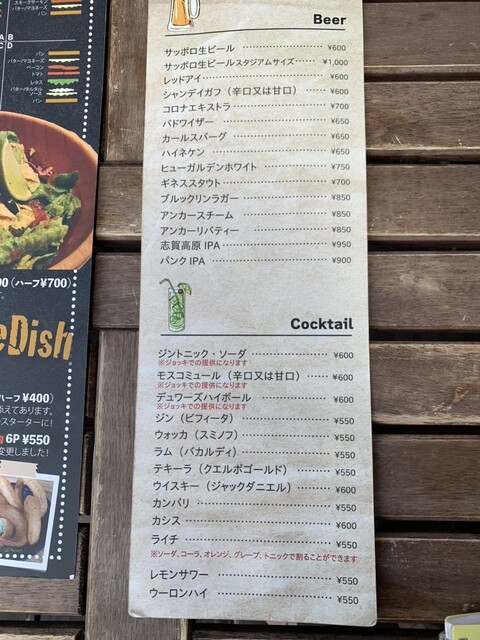 スモークサーモン
バター/マヨネーズ
パン
A B
C D
パン
バター/マヨネーズ
ベーコン
トマト
レタス
バター/タルタル
ソース
パン
(ハーフ¥700)
eDish
ハーフ¥400)
添えてあります。
スターターに!
6P ¥550
変更しました!
Beer
サッポロ生ビール ¥600
サッポロ生ビールスタジアムサイズ ¥1,000
レッドアイ ¥600
シャンディガフ(辛口又は甘口) ¥600
コロナエキストラ ¥700
バドワイザー ¥650
カールスバーグ ¥650
ハイネケン ¥650
ヒューガルデンホワイト ¥750
ギネススタウト ¥700
ブルックリンラガー ¥850
アンカースチーム ¥850
アンカーリバティー ¥850
志賀高原 IPA ¥950
パンク IPA ¥900
Cocktail
ジントニック・ソーダ ¥600
※ジョッキでの提供になります
モスコミュール(辛口又は甘口) ¥600
※ジョッキでの提供になります
デュワーズハイボール ¥600
※ジョッキでの提供になります
ジン(ビフィータ) ¥550
ウォッカ(スミノフ) ¥550
ラム(バカルディ) ¥550
テキーラ(クエルボゴールド) ¥550
ウイスキー(ジャックダニエル) ¥600
カンパリ ¥550
カシス ¥600
ライチ ¥550
※ソーダ、コーラ、オレンジ、グレープ、トニックで割ることができます
レモンサワー ¥550
ウーロンハイ ¥550